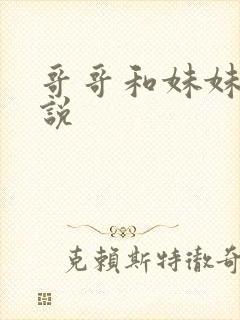 哥哥和妹妹
說
克賴斯特徹奇